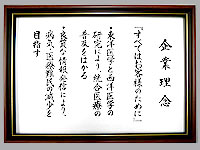 企業理念
『すべてはお客様のために』
・東洋医学と西洋医学の
研究により、統合医療の
普及をはかる
・良質な情報発信により、
病気、医療難民の減少を
目指す